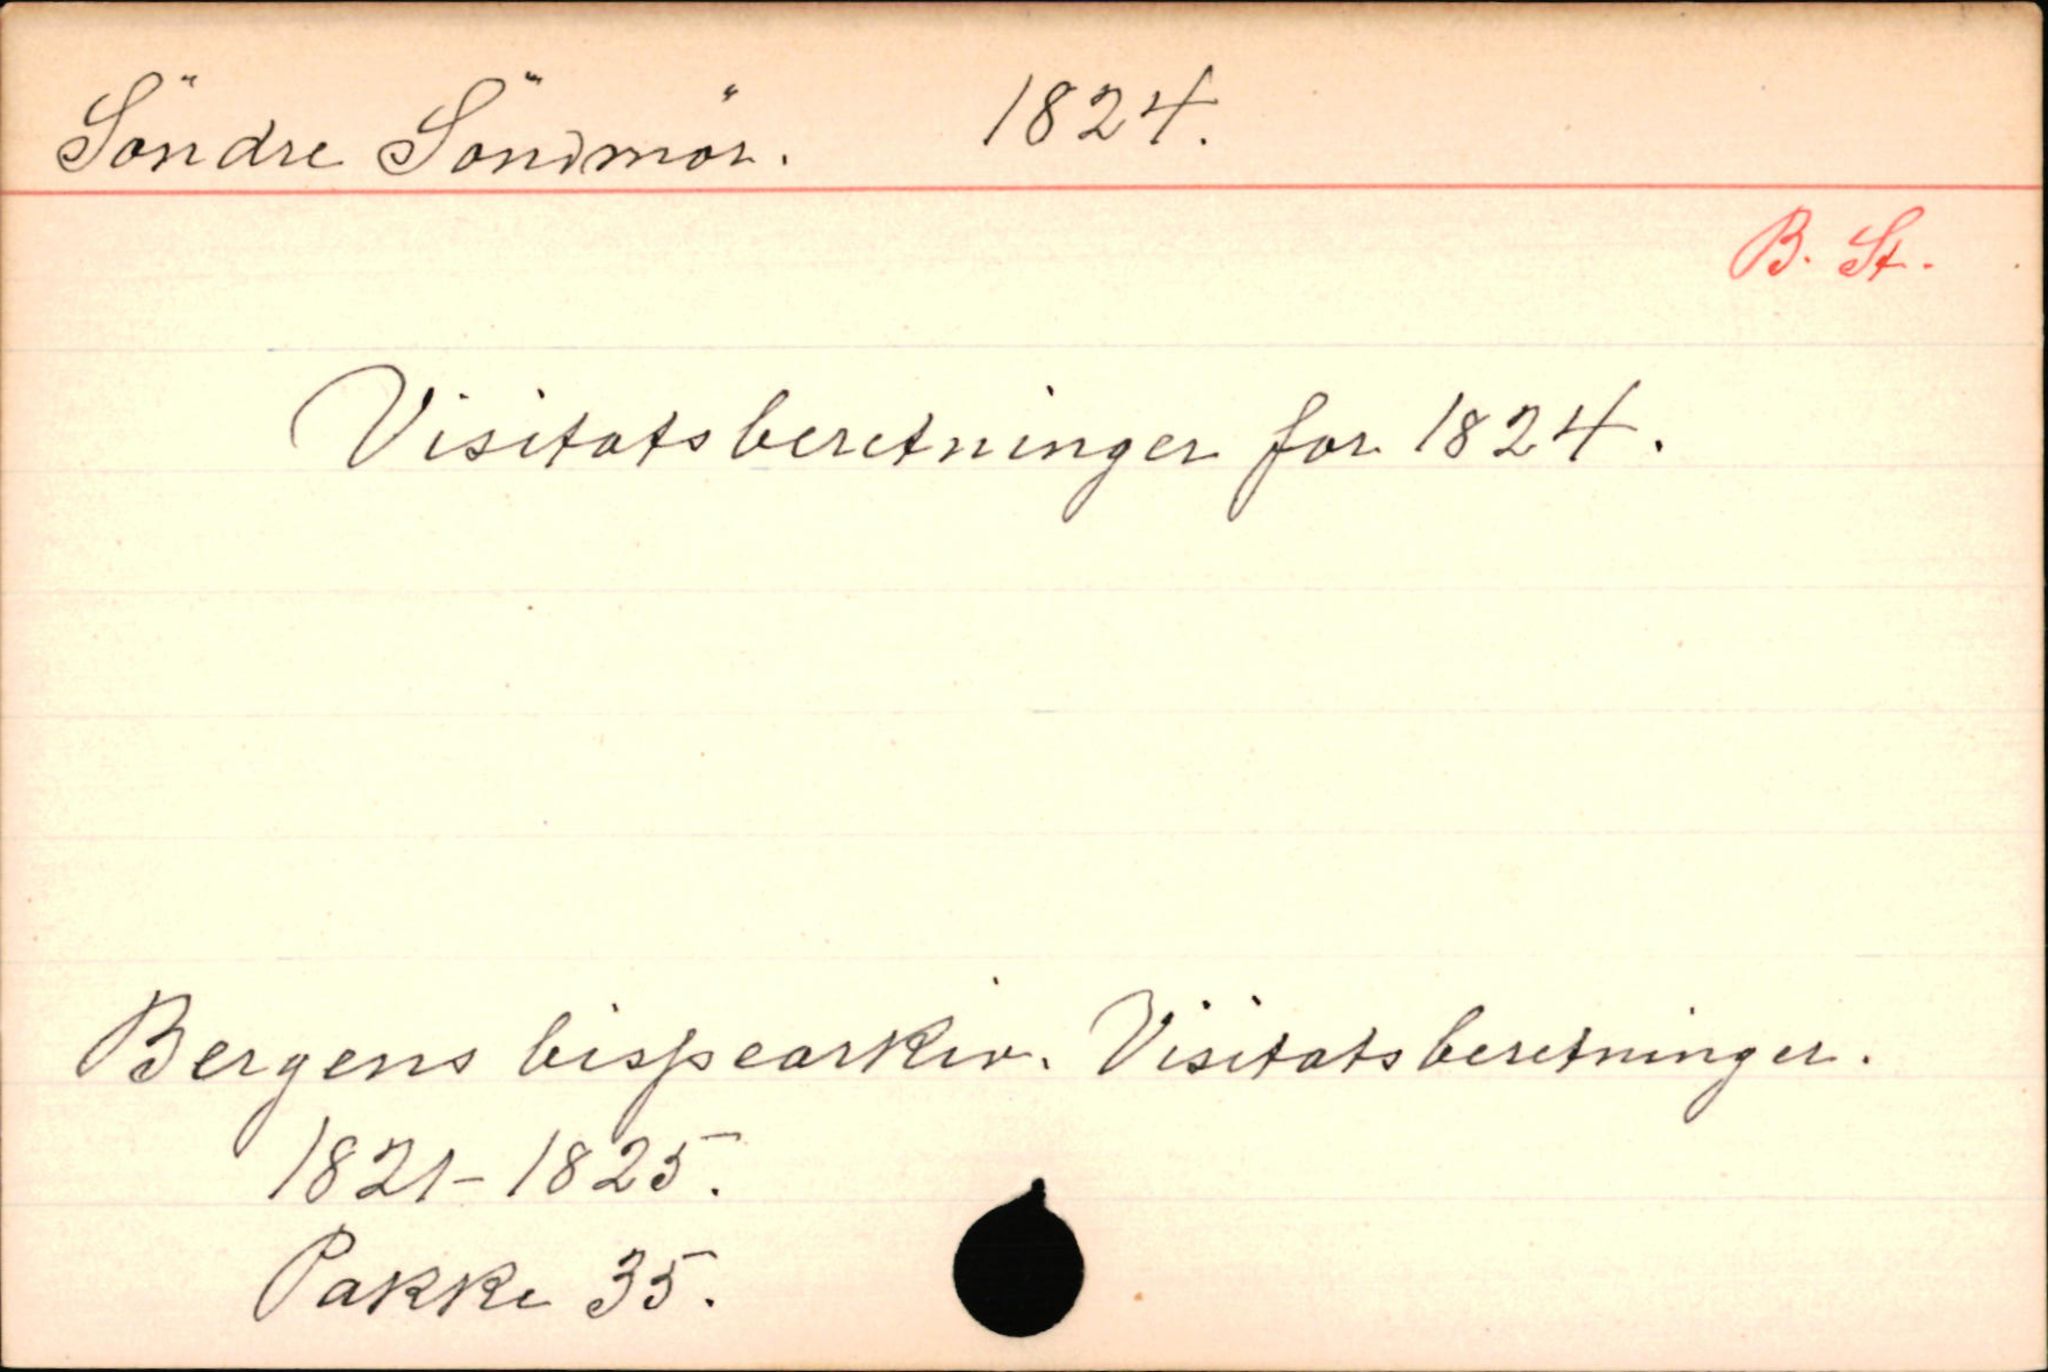 Söndre Söndmör. 1824.
B. St.
Visitatsberetninger for 1824.
Bergens bispearkiv. Visitatsberetninger.
1821-1825.
Pakke 35.